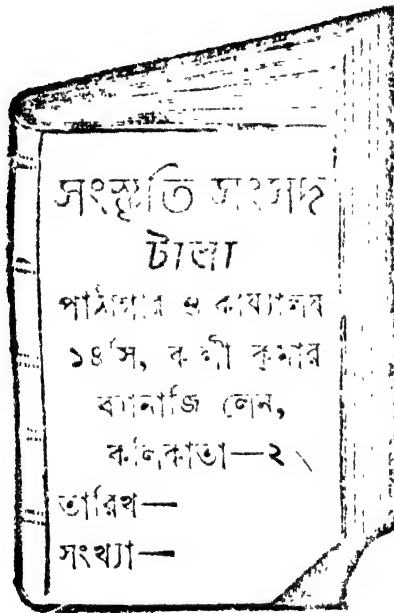 সংস্কৃতি সংসদ
টালা
পাঠাগার ও কার্য্যালয়
১৪ সি, কালী কুমার
ব্যানার্জি লেন,
কলিকাতা—২
তারিখ—
সংখ্যা—